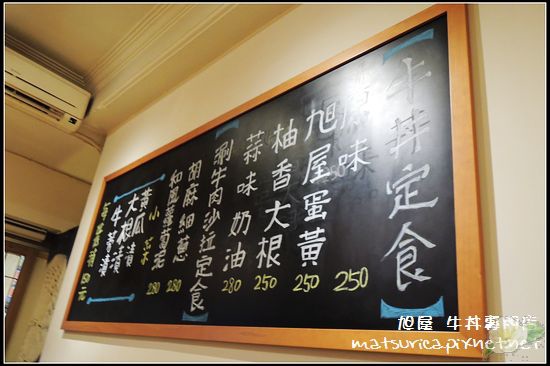 【牛丼定食】
原味 250
旭屋蛋黃 250
柚香大根 250
蒜味奶油 280
【涮牛肉沙拉定食】
胡麻細蔥 280
和風蘿蔔泥 280
小菜
黃瓜漬
大根漬
牛蒡漬
150元
旭屋 牛丼專門店
matsurica.pixnet.net